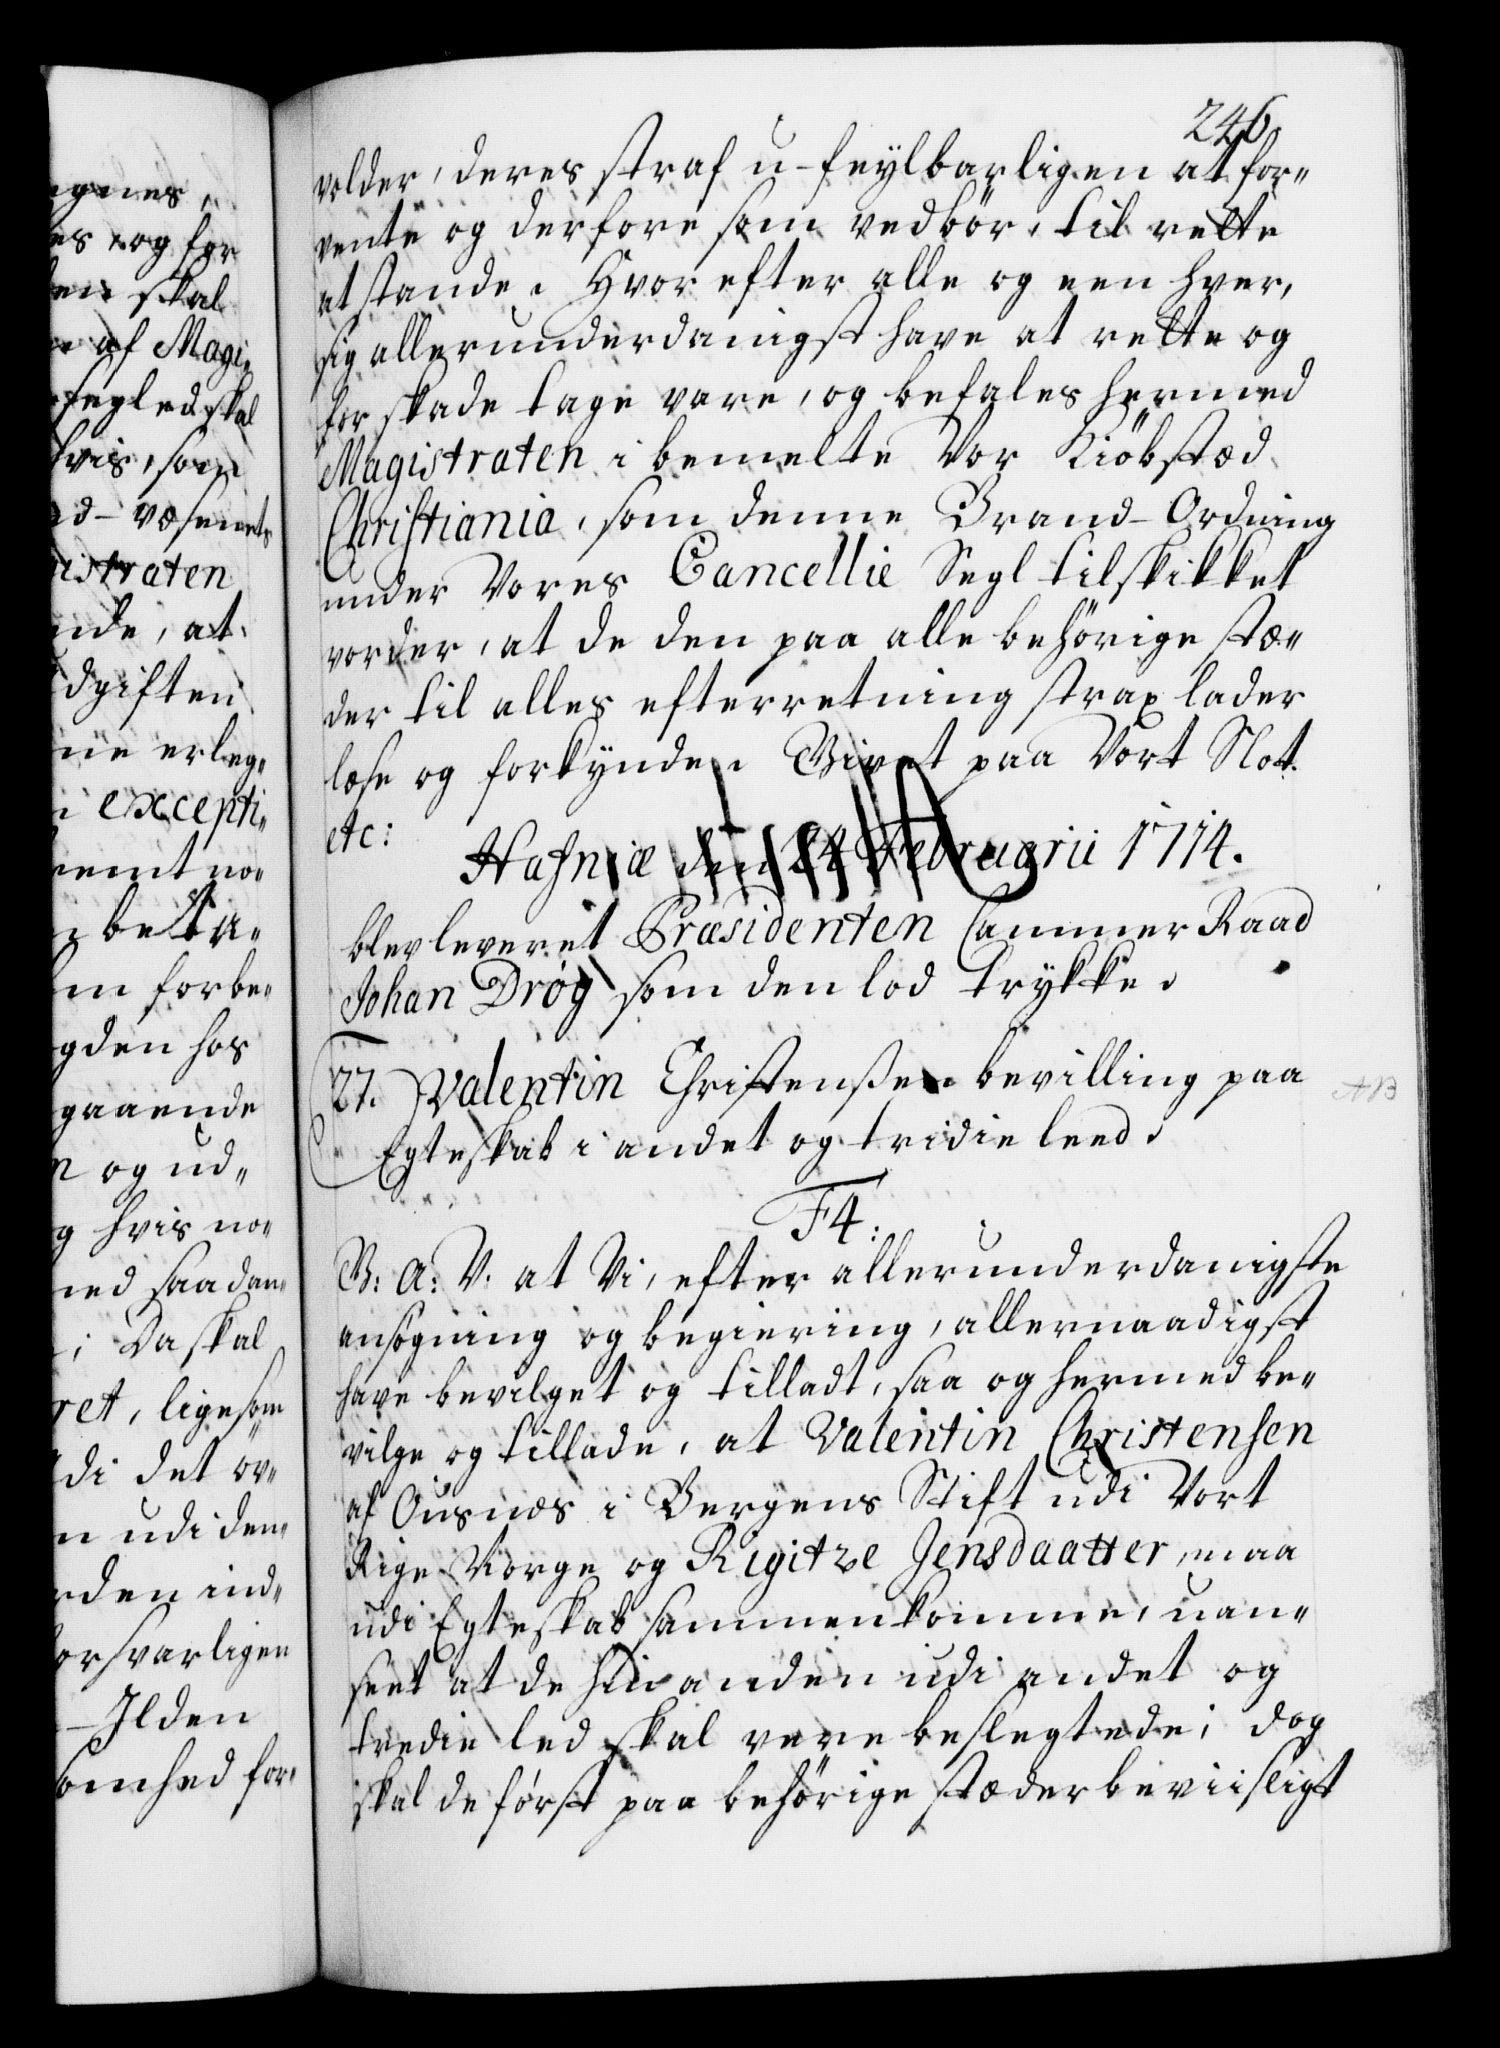 246
volder, deres straf u-feylbarligen at for„
vente og derfore som vedbör, til rette
at stande. Hvor efter alle og een hver,
sig allerunderdanigst have at rette og
for skade tage vare, og befales hermed
Magistraten i bemelte Vor Kiöbstæd
Christiania, som denne Brand-Ordning
under Vores Cancellie Segl tilskikket
vorder, at de den paa alle behörige stæ„
der til alles efterretning strax lader
læse og forkynde. Givet paa Vort Slot
etc:
Hafniæ den 24 Februarii 1714.
blev leveret Præsidenten Cammer Raad
Johan Dröy som den lod trykke.
27. Valentin Christensen bevilling paa
Egteskab i andet og tridie leed.
F4:
G: A: V. at Vi, efter allerunderdanigste
ansögning og begiering, allernaadigst
have bevilget og tilladt, saa og hermed be„
vilge og tillade, at Valentin Christensen
af Ousnæs i Bergens Stift udi Vort
Rige Norge og Rigitze Jensdaatter, maa
udi Egteskab sammenkomme, uan„
seet at de hin anden udi andet og
tredie led skal vere beslegtede; dog
skal de först paa behörige stæder beviisligt
egnes,
es og for
den skal
af Magi„
segled skal
hvis, som
d-væsenets
istraten
nde, at
dgiften
ne erleg„
i excepti„
nemt no„
beta„
m forbe„
gden hos
gaaende
n og ud„
g hvis no„
ned saadan„
; Da skal
ret, ligesom
di det öv„
n udi den„
rden ind„
orsvarligen
-Ilden
somhed for„